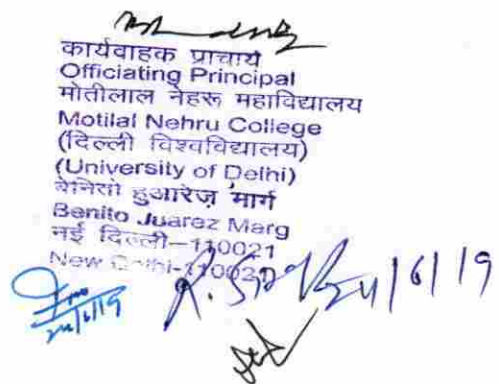 कार्यवाहक प्राचार्य
Officiating Principal
मोतीलाल नेहरू महाविद्यालय
Motilal Nehru College
(दिल्ली विश्वविद्यालय)
(University of Delhi)
बेनितो हुआरेज़ मार्ग
Benito Juarez Marg
नई दिल्ली-110021
New Delhi-110021
24/6/19
24/6/19